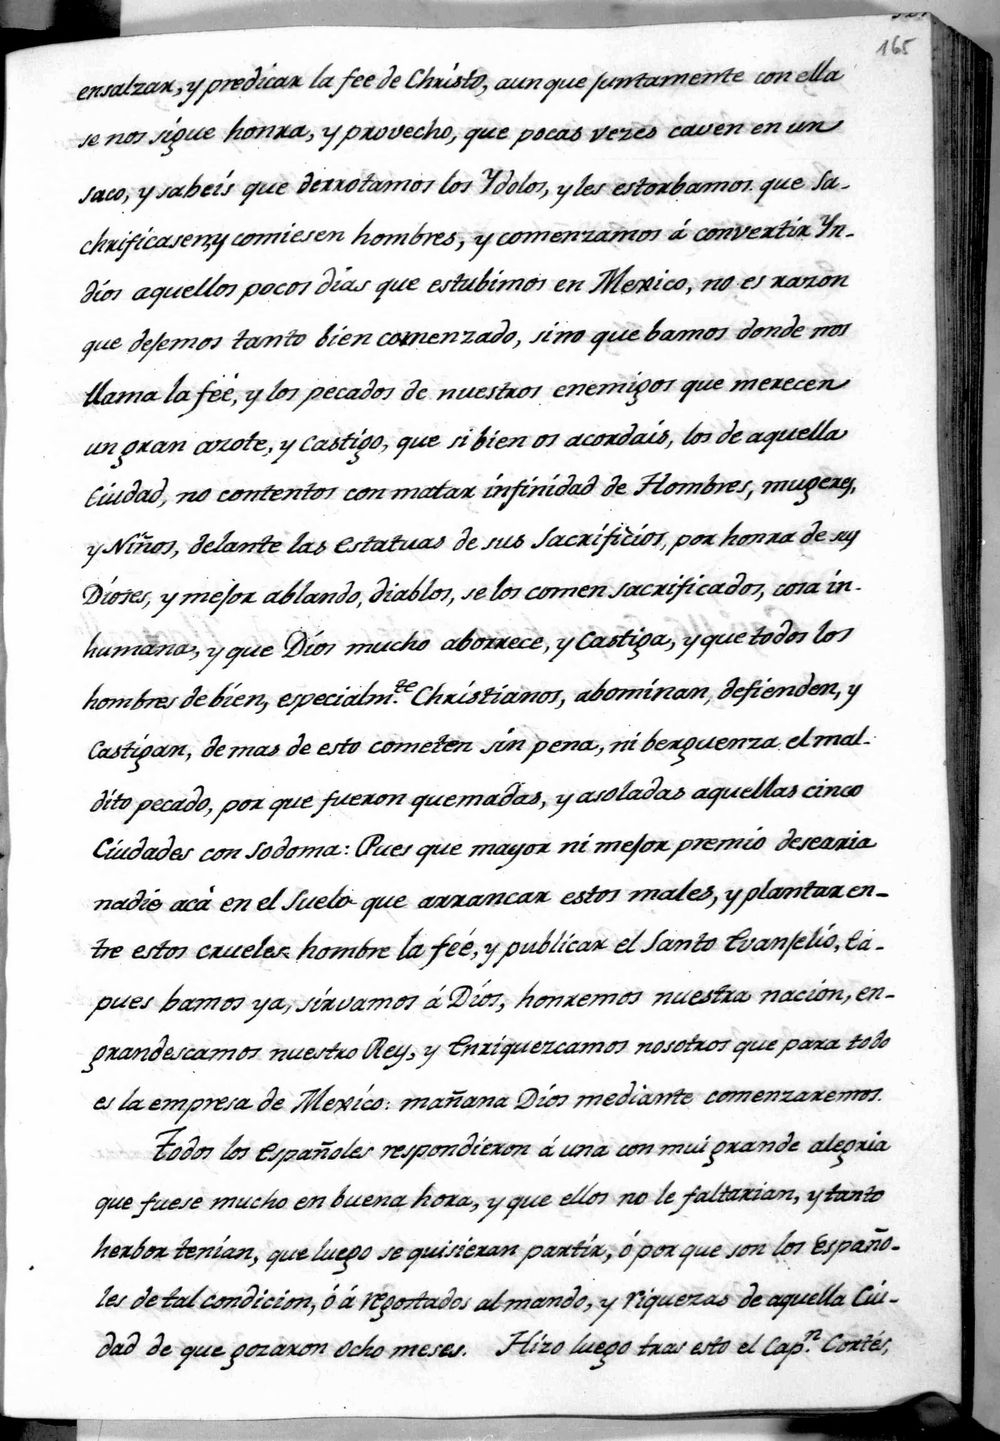 165
ensalzar, y predicar la fee de Christo, aunque juntamente con ella
se nos sigue honra, y provecho, que pocas vezes caven en un
saco, y sabeis que derrotamos los Ydolos, y les estorbamos que Sa-
chrificasen, y comiesen hombres, y comenzamos á convertir Yn-
dios aquellos pocos dias que estubimos en Mexico, no es razon
que dejemos tanto bien comenzado, sino que bamos donde nos
llama la feé, y los pecados de nuestros enemigos que merecen
un gran azote, y Castigo, que si bien os acordais, los de aquella
Ciudad, no contentos con matar infinidad de Hombres, mugeres,
y Niños, delante las Estatuas de sus Sacrificios, por honra de sus
Dioses, y mejor ablando, diablos, se los comen sacrificados, cosa in-
humana, y que Dios mucho aborrece, y Castiga, y que todos los
hombres de bien, especialm.te Christianos, abominan, defienden, y
Castigan, demas de esto cometen sin pena, ni berguenza el mal-
dito pecado, por que fueron quemadas, y asoladas aquellas cinco
Ciudades con Sodoma: Pues que mayor ni mejor premio desearia
nadie acá en el Suelo que arrancar estos males, y plantar en-
tre estos crueles hombre la feé, y publicar el Santo Evanjelio, Ea-
pues bamos ya, sirvamos á Dios, honremos nuestra nacion, en-
grandescamos nuestro Rey, y Enriquezcamos nosotros que para todo
es la empresa de Mexico: mañana Dios mediante comenzaremos.
Todos los Españoles respondieron á una con mui grande alegria
que fuese mucho en buena hora, y que ellos no le faltarian, y tanto
herbor tenian, que luego se quisieran partir, ó por que son los Españo-
les de tal condicion, ó á regostados al mando, y riquezas de aquella Ciu-
dad de que gozaron Ocho meses. Hizo luego tras esto el Cap.n Cortés,